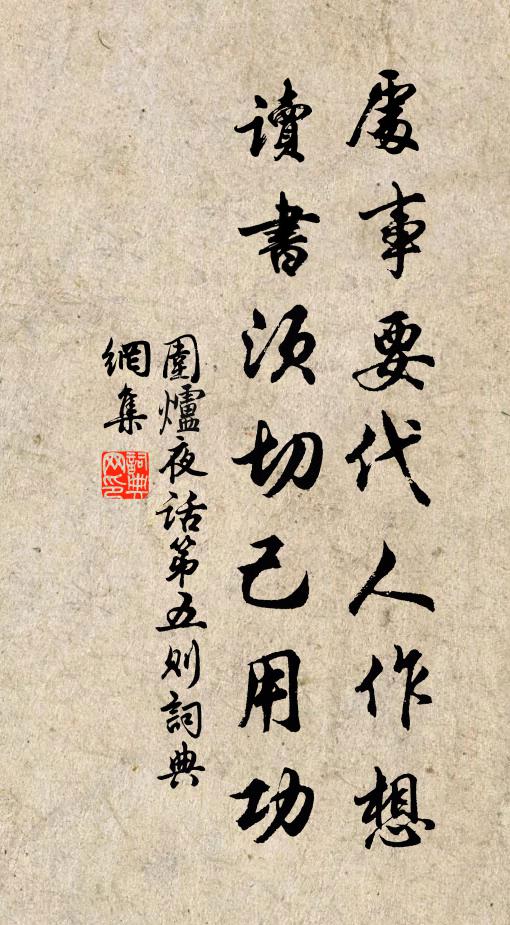 處事要代人作想
讀書須切己用功
圍爐夜话第五则詞典
網集
詞典
网印